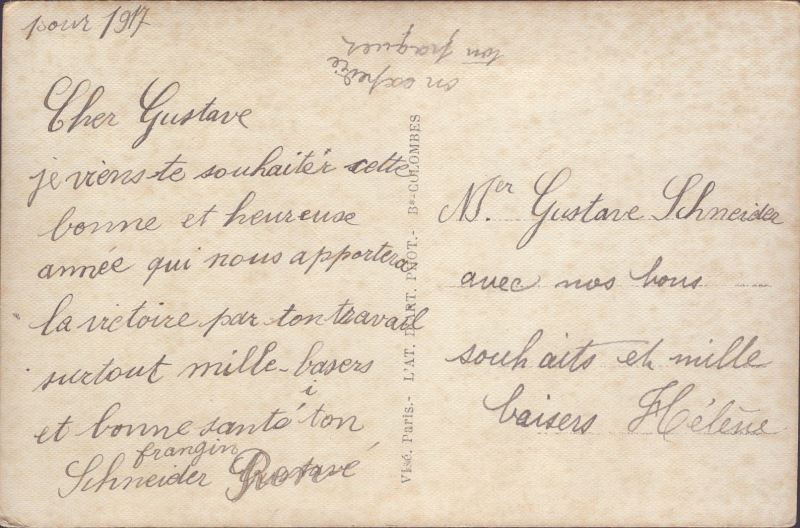 pour 1917
on expédie
ton paquet
Cher Gustave
je viens te souhaiter cette
bonne et heureuse
année qui nous apportera
la victoire par ton travail
surtout mille basers
i
et bonne santé ton
frangin
Schneider
Visé. Paris.- L'AT. D'ART. PHOT.- Bs-COLOMBES
Mer. Gustave Schneider
avec nos bons
souhaits et mille
baisers Hélène